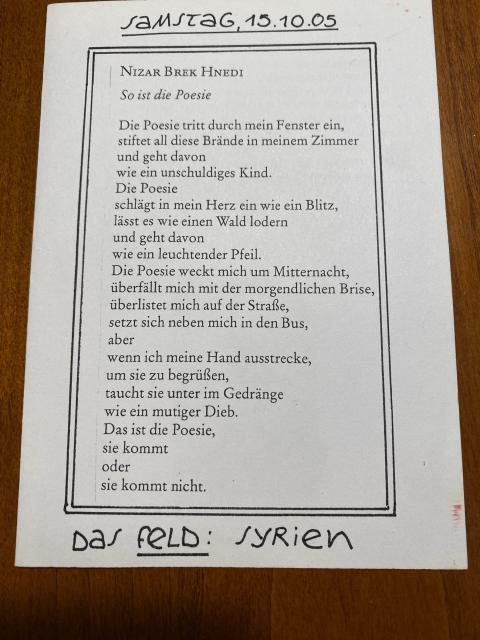 SAMSTAG, 15.10.05
NIZAR BREK HNEDI
So ist die Poesie
Die Poesie tritt durch mein Fenster ein,
stiftet all diese Brände in meinem Zimmer
und geht davon
wie ein unschuldiges Kind.
Die Poesie
schlägt in mein Herz ein wie ein Blitz,
lässt es wie einen Wald lodern
und geht davon
wie ein leuchtender Pfeil.
Die Poesie weckt mich um Mitternacht,
überfällt mich mit der morgendlichen Brise,
überlistet mich auf der Straße,
setzt sich neben mich in den Bus,
aber
wenn ich meine Hand ausstrecke,
um sie zu begrüßen,
taucht sie unter im Gedränge
wie ein mutiger Dieb.
Das ist die Poesie,
sie kommt
oder
sie kommt nicht.
Das FELD: SYRIEN